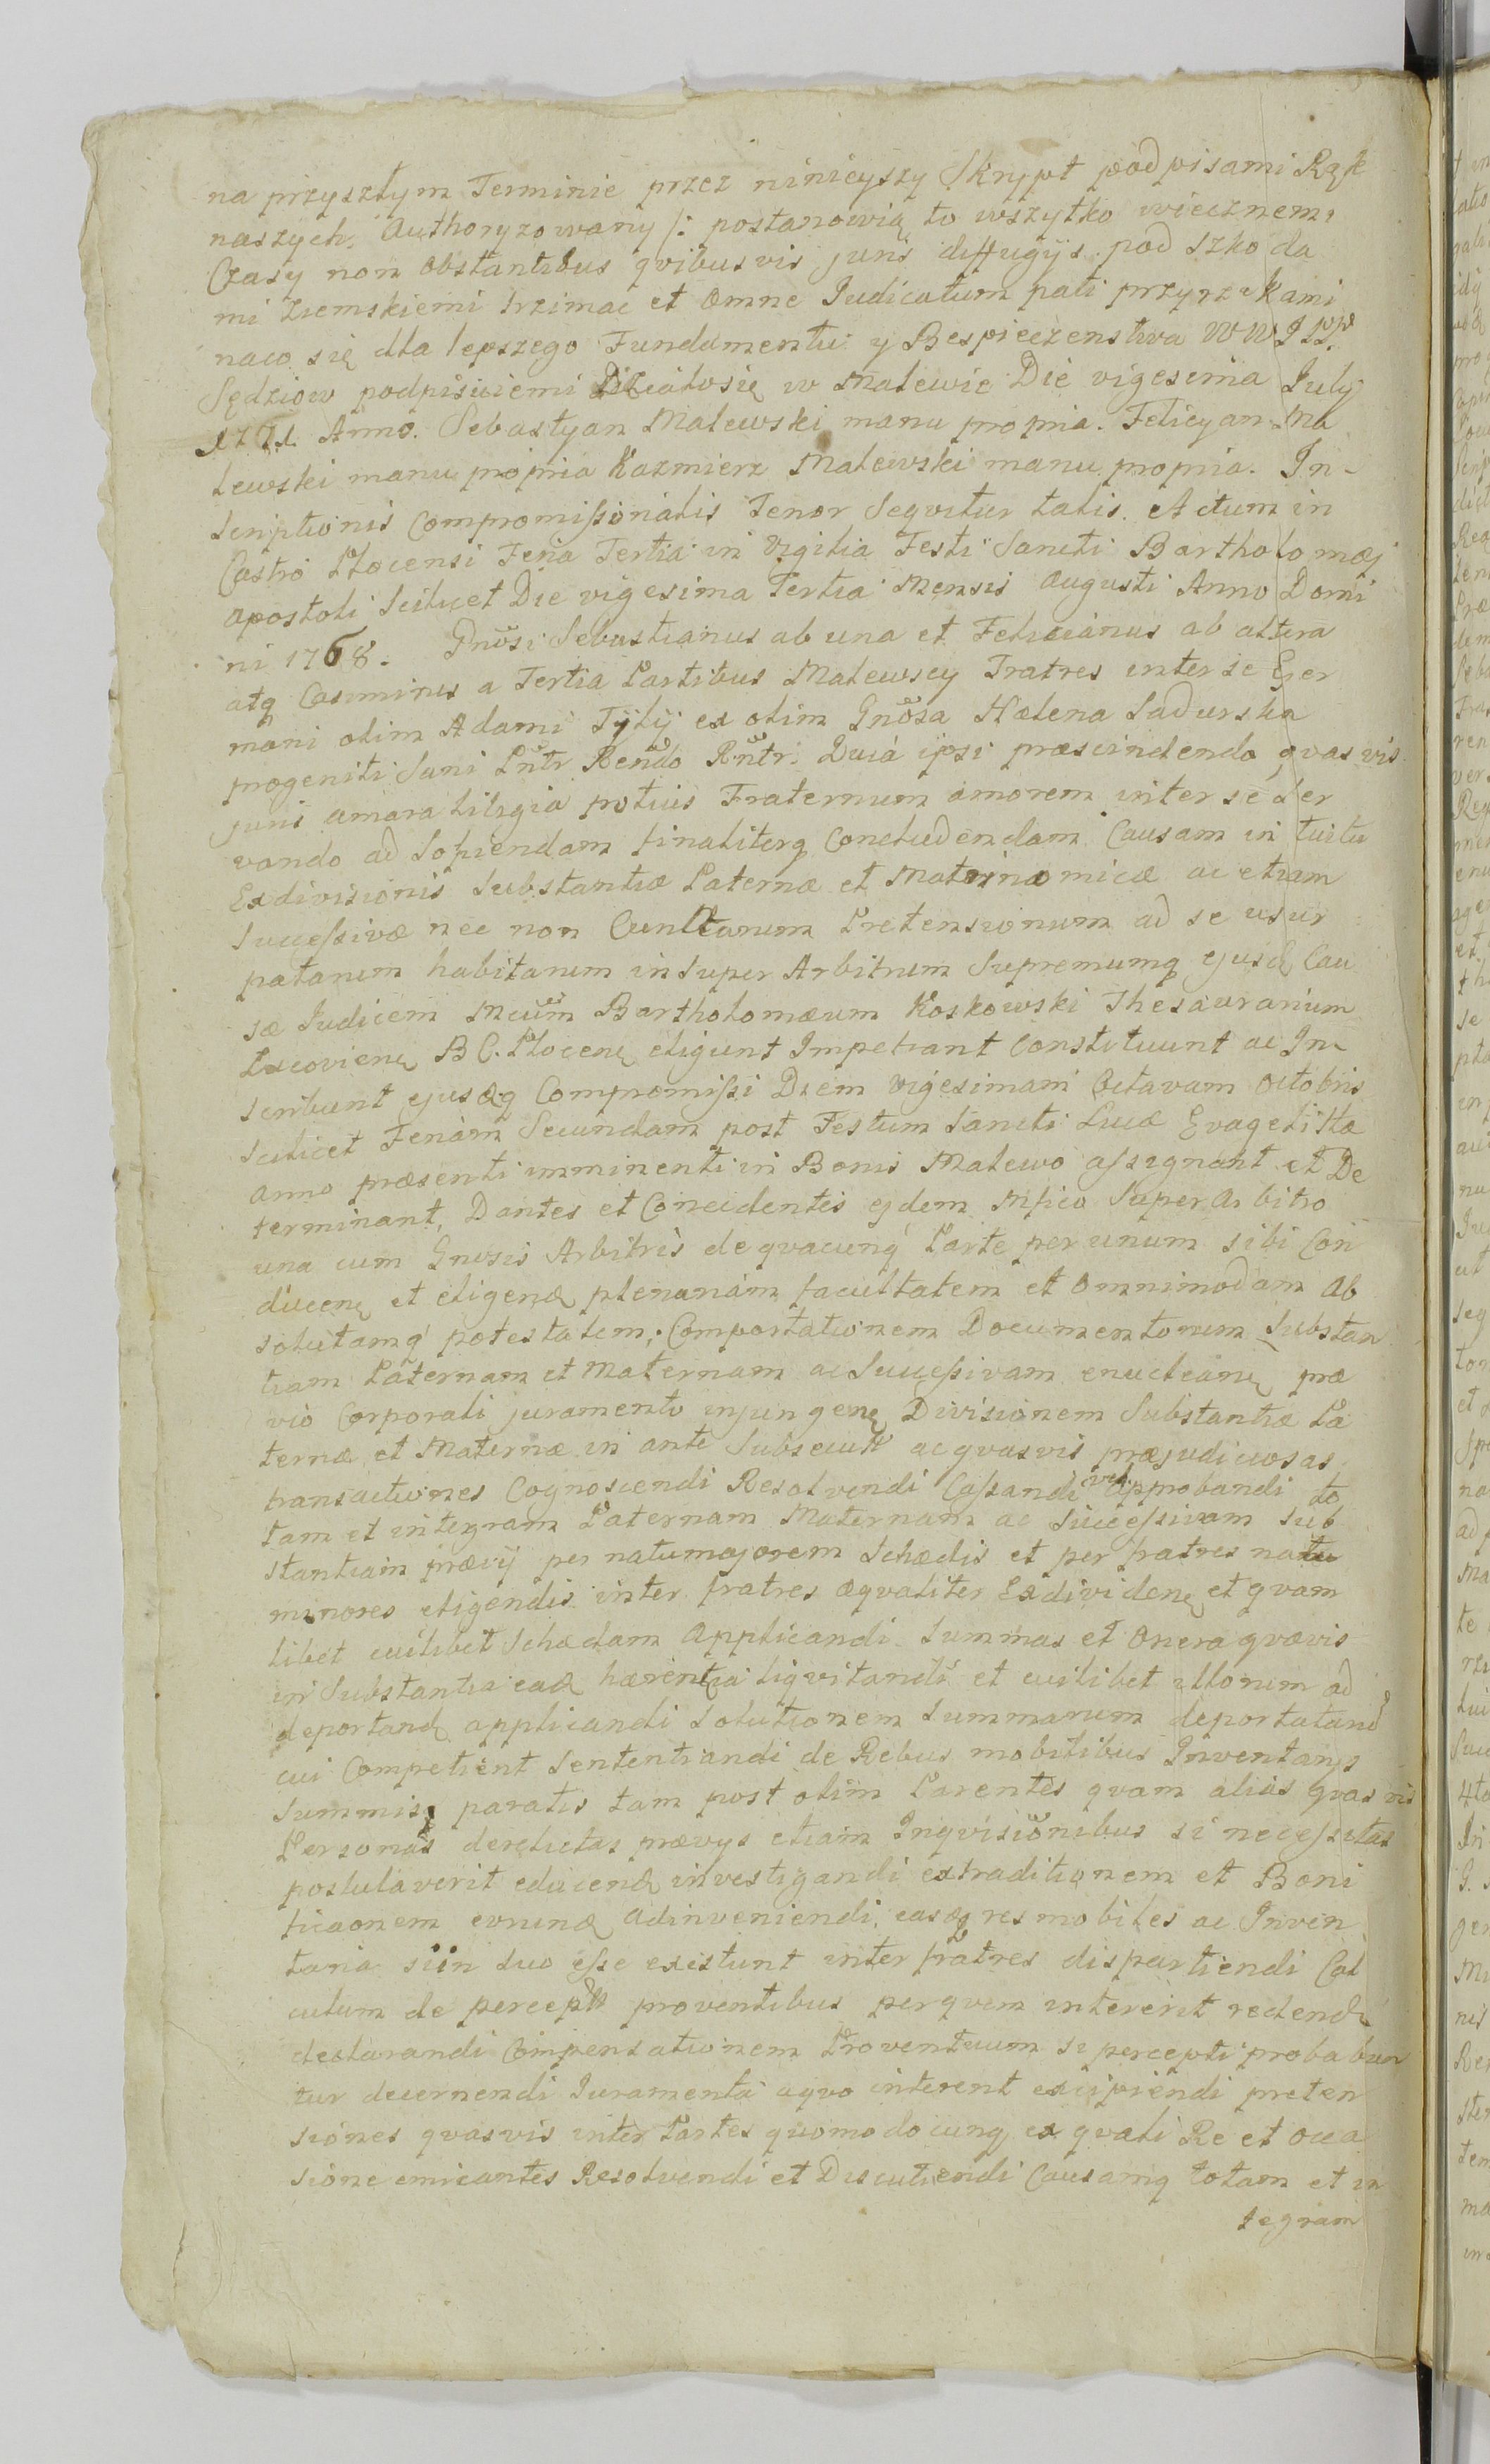 na przyszłym Terminie przez ninieyszy Skrypt podpisami Rąk
naszych. Authoryzowany /: postanowią to wszytko wiecznemi
Czasy non obstantibus qvibusvis juris diffugijs pod szkoda
mi Ziemskiemi trzimac et omne Iudicatum pati przyrzekami
naco się dla lepszego Fundamentu y Bespieczenstwa WWJPP.
Sędziow podpisuiemi Działosię w Malewie Die vigesima July
1771 Anno. Sebastyan Malewski manu propria. Felicyan Ma
lewski manu propria Kazmierz Malewski manu propria. In-
scriptionis Compromissionalis Tenor Seqvitur talis. Actum in
Castro Plocensi Feria Tertia in Vigilia Festi Sancti Bartholomæj
Apostoli Scilicet Die vigesima Tertia Mensis Augusti Anno Domi
ni 1768. Gnosi Sebastianus ab una et Felicianus ab altera
atq Casimirus a Tertia Partibus Malewscy Fratres inter se Ger
mani olim Adami Fijlij ex olim Gnosa Helena Sadurska
progeniti Sani Pntr Rendo Rntr. Quia ipsi præscindendo qvasvis
juris amara litigia potius Fraternum amorem inter se ser
vando ad Sopiendam finaliterq Concludendam Causam in tuitu
Exdivisionis Substantiæ Paternæ et Maternæ micæ ac etiam
Successivæ nec non Cunctarum Pretensionum ad se usur
patarum habitarum in super Arbitrum Supremumq ejusd Cau
sæ Iudicem Mcum Bartholomæum Koskowski Thesaurarium
B C. Plocen eligunt Impetrant Constituunt ac In
scribunt ejusdq Compromissi Diem Vigesimam Octavam Octobris
Scilicet Feriam Secundam post Festum Sancti Lucæ Evagelistæ
anno præsenti imminenti in Bonis Malewo assignant et De
terminant, Dantes et Concedentes ejdem Mfico Super Arbitro
una cum Gnosis Arbitris de qvacunq Parte per unum sibi Con
ducen et eligend plenariam facultatem et Omnimodam Ab
solutamq potestatem; Comportationem Documentorum Substan
tiam Paternam et Maternam ac Successivam enuclean præ
vio Corporali juramento injungen Divisionem Substantiæ Pa
ternæ et Maternæ in ante Subsecutt ac qvasvis præjudiciosas
transactiones Cognoscendi Resolvendi Cassandi vel Approbandi to
tam et integram Paternam Maternam ac Successivam Sub
stantiam prævij per natumajorem Schedis et per fratres natu
minores eligendis inter fratres æqvaliter Exdividen et qvam
libet cuilibet Schedam Applicandi Summas et Onera qvævis
in Substantia ead hærentia liqvitandi et cuilibet illorum ad
deportand applicandi Solutionem Summarum deportatand
cui Competient Sententiandi de Rebus mobilibus Inventarijs
Summis paratis tam post olim Parentes qvam alias qvasvis
Personas derelictas prævys etiam Inqvisionibus si necessitas
postulaverit educend investigandi extraditionem et Boni
ficaonem eorund Adinveniendi, easdq res mobiles ac Inven
taria siin suo esse existunt inter fratres dispartiendi Cal
culum de perceptt proventibus per qvem intererit redendi
declarandi Compensationem Proventuum si percepti probabun
tur decernendi Iuramenta aqvo intererit excipiendi preten
siones qvasvis inter Partes qvomodocunq ex qvali Re et occa
sione emicantes Resolvendi et Discutiendi Causamq totam et in
tegram